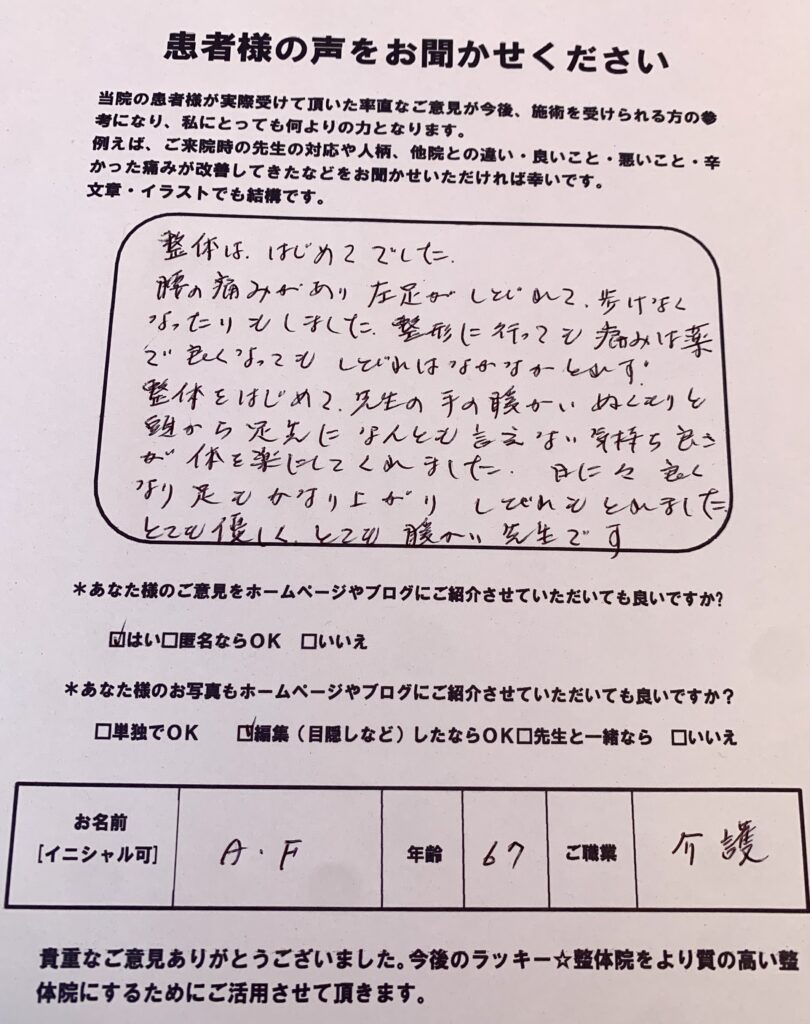 患者様の声をお聞かせください
当院の患者様が実際受けて頂いた率直なご意見が今後、施術を受けられる方の参
考になり、私にとっても何よりの力となります。
例えば、ご来院時の先生の対応や人柄、他院との違い・良いこと・悪いこと・辛
かった痛みが改善してきたなどをお聞かせいただければ幸いです。
文章・イラストでも結構です。
整体は、はじめてでした。
腰の痛みがあり左足がしびれて、歩けなく
なったりもしました。整形に行っても痛みは薬
で良くなってもしびれはなかなかとれず、
整体をはじめて、先生の手の暖かいぬくもりと
頭から足先になんとも言えない気持ち良さ
が体を楽にしてくれました。日に々良く
なり足もかなり上がりしびれもとれました
とても優しく、とても暖かい先生です
＊あなた様のご意見をホームページやブログにご紹介させていただいても良いですか?
☑はい□匿名ならOK □いいえ
＊あなた様のお写真もホームページやブログにご紹介させていただいても良いですか？
□単独でOK ☑編集（目隠しなど）したならOK□先生と一緒なら □いいえ
お名前
[イニシャル可] A・F 年齢 67 ご職業 介護
貴重なご意見ありがとうございました。今後のラッキー☆整体院をより質の高い整
体院にするためにご活用させて頂きます。